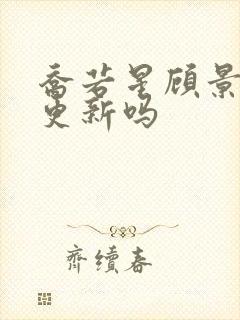 乔若星顾景
更新吗
齐续春